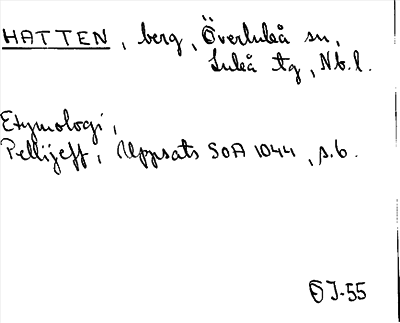 HATTEN, berg, Överluleå sn,
Luleå tg, Nb.l.
Etymologi,
Pellijeff, Uppsats SOA 1044, s.6.
ÖJ-55